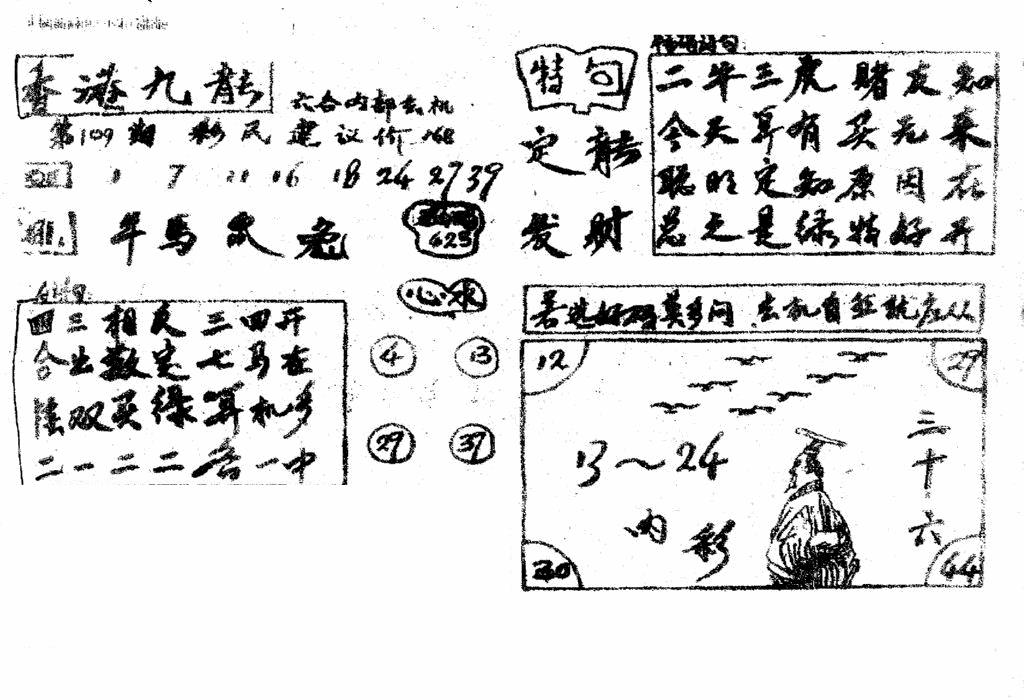 香港九龍
六合内部玄机
第109期 彩民建议价168
1 7 11 16 18 24 27 39
牛马鼠兔
623
心水
四三相反三四开
合出数定七马在
陆双买绿算机多
二一二二合一中
4 13
29 37
特句
定能
发财
二牛三虎賭友知
今天算有买无来
聪明定知原因在
总之是绿特好开
若选好码莫多问 玄机自然就应从
12 29
13～24
内彩
三十六
30 44